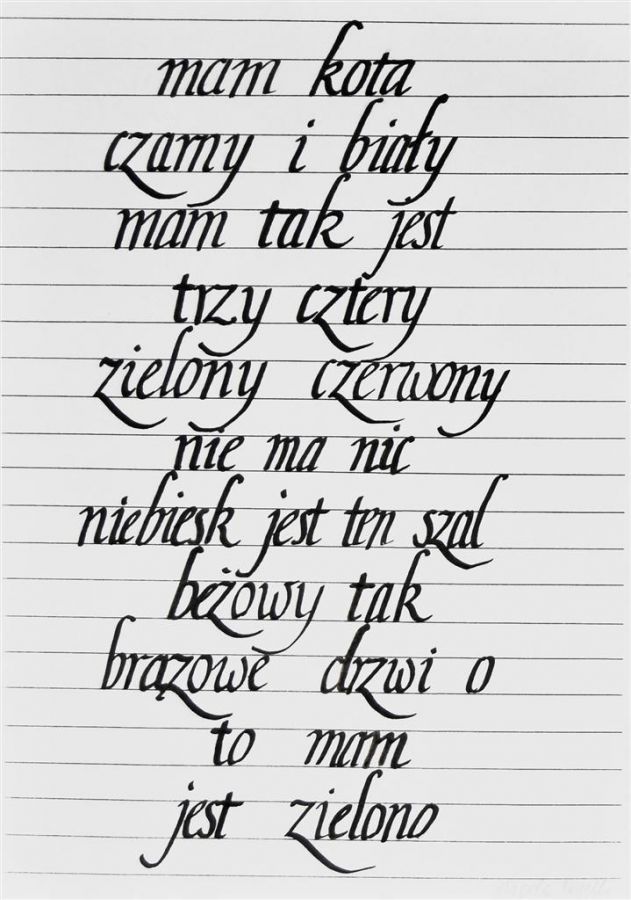 mam kota
czarny i biały
mam tak jest
trzy cztery
zielony czerwony
nie ma nic
niebiesk jest ten szal
beżowy tak
brązowe drzwi o
to mam
jest zielono